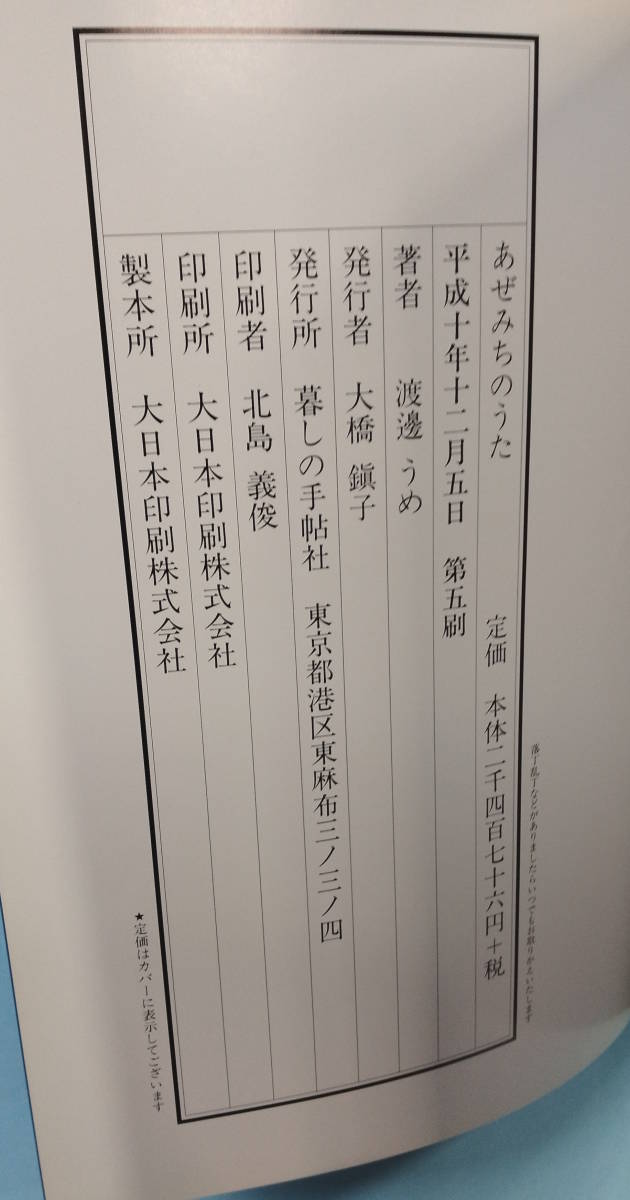 落丁乱丁などがありましたらいつでもお取りかえいたします
あぜみちのうた 定価 本体二千四百七十六円+税
平成十年十二月五日 第五刷
著者 渡邊 うめ
発行者 大橋 鎭子
発行所 暮しの手帖社 東京都港区東麻布三ノ三ノ四
印刷者 北島 義俊
印刷所 大日本印刷株式会社
製本所 大日本印刷株式会社
★定価はカバーに表示してございます